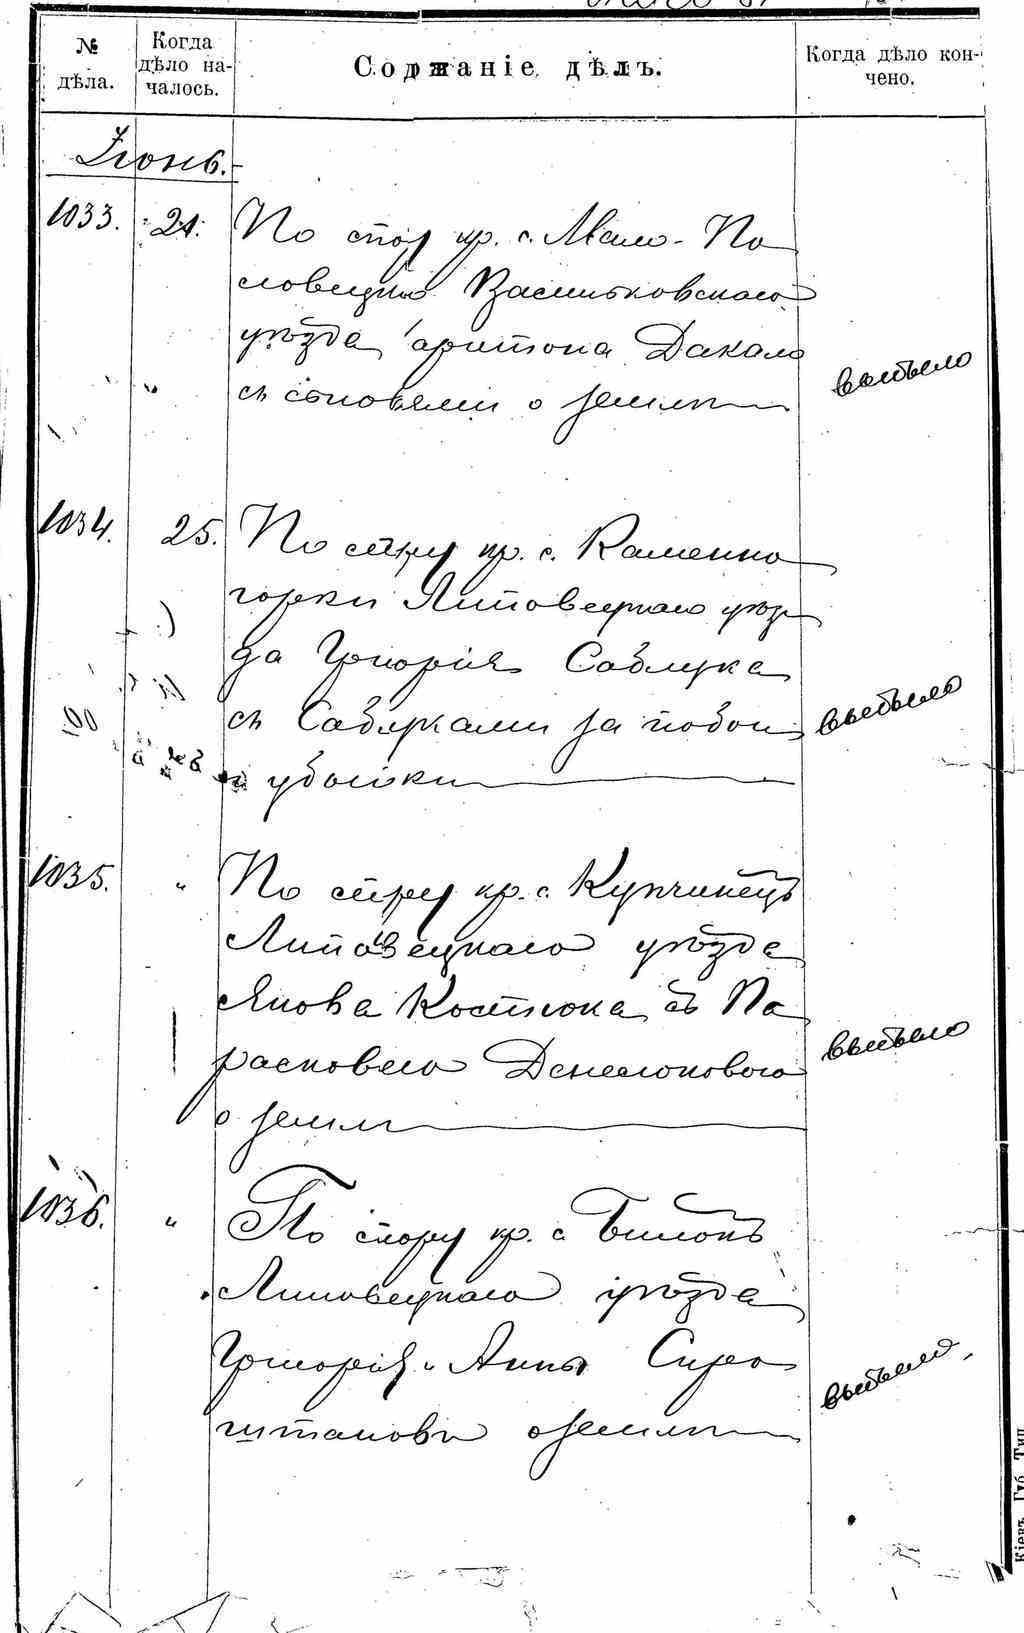 № дѣла.
Когда дѣло на-
чалось.
Содржаніе дѣлъ.
Когда дѣло кон-
чено.
Іюнь.
1033. 21. По спору кр. с. Мало-По
ловецкаго Васильковскаго
уѣзда Харитона Дакало
съ сыновьями о землѣ
выбыло
1034. 25. По спору кр. с. Каменно
горки Липовецкаго уѣз
да Григорія Саблука
съ Саблуками за побои
и убытки
выбыло
1035. " По спору кр. с. Купчинецъ
Липовецкаго уѣзда
Якова Костюка съ Па
расковею
о землѣ
выбыло
1036. " По спору кр. с.
Липовецкаго уѣзда
Григорія и Анны Сиро
штановъ о землѣ
выбыло
Кіевъ. Губ. Тип.